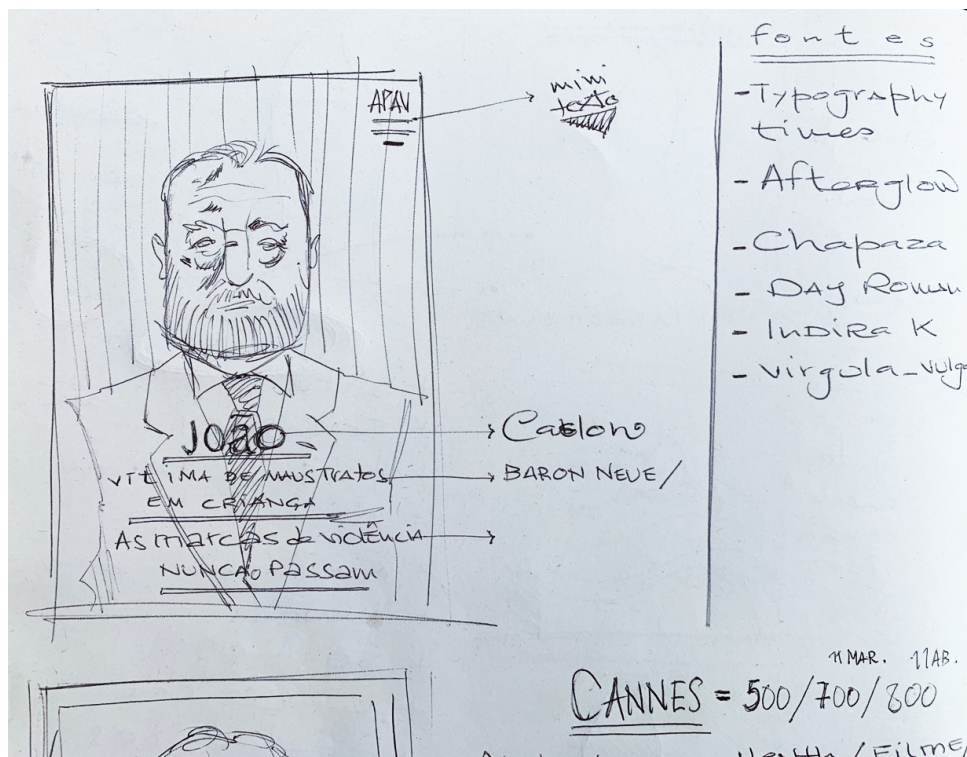 APAV
mini
texto
JOÃO
VÍTIMA DE MAUSTRATOS
EM CRIANÇA
As marcas de violência
NUNCA PASSAM
Caslon
BARON NEUE/
fontes
- Typography
times
- Afterglow
- Chapaza
- DAY Roman
- INDIRA K
- virgula_vulga
11 MAR. 11 AB.
CANNES = 500/700/800
Health / FILME/